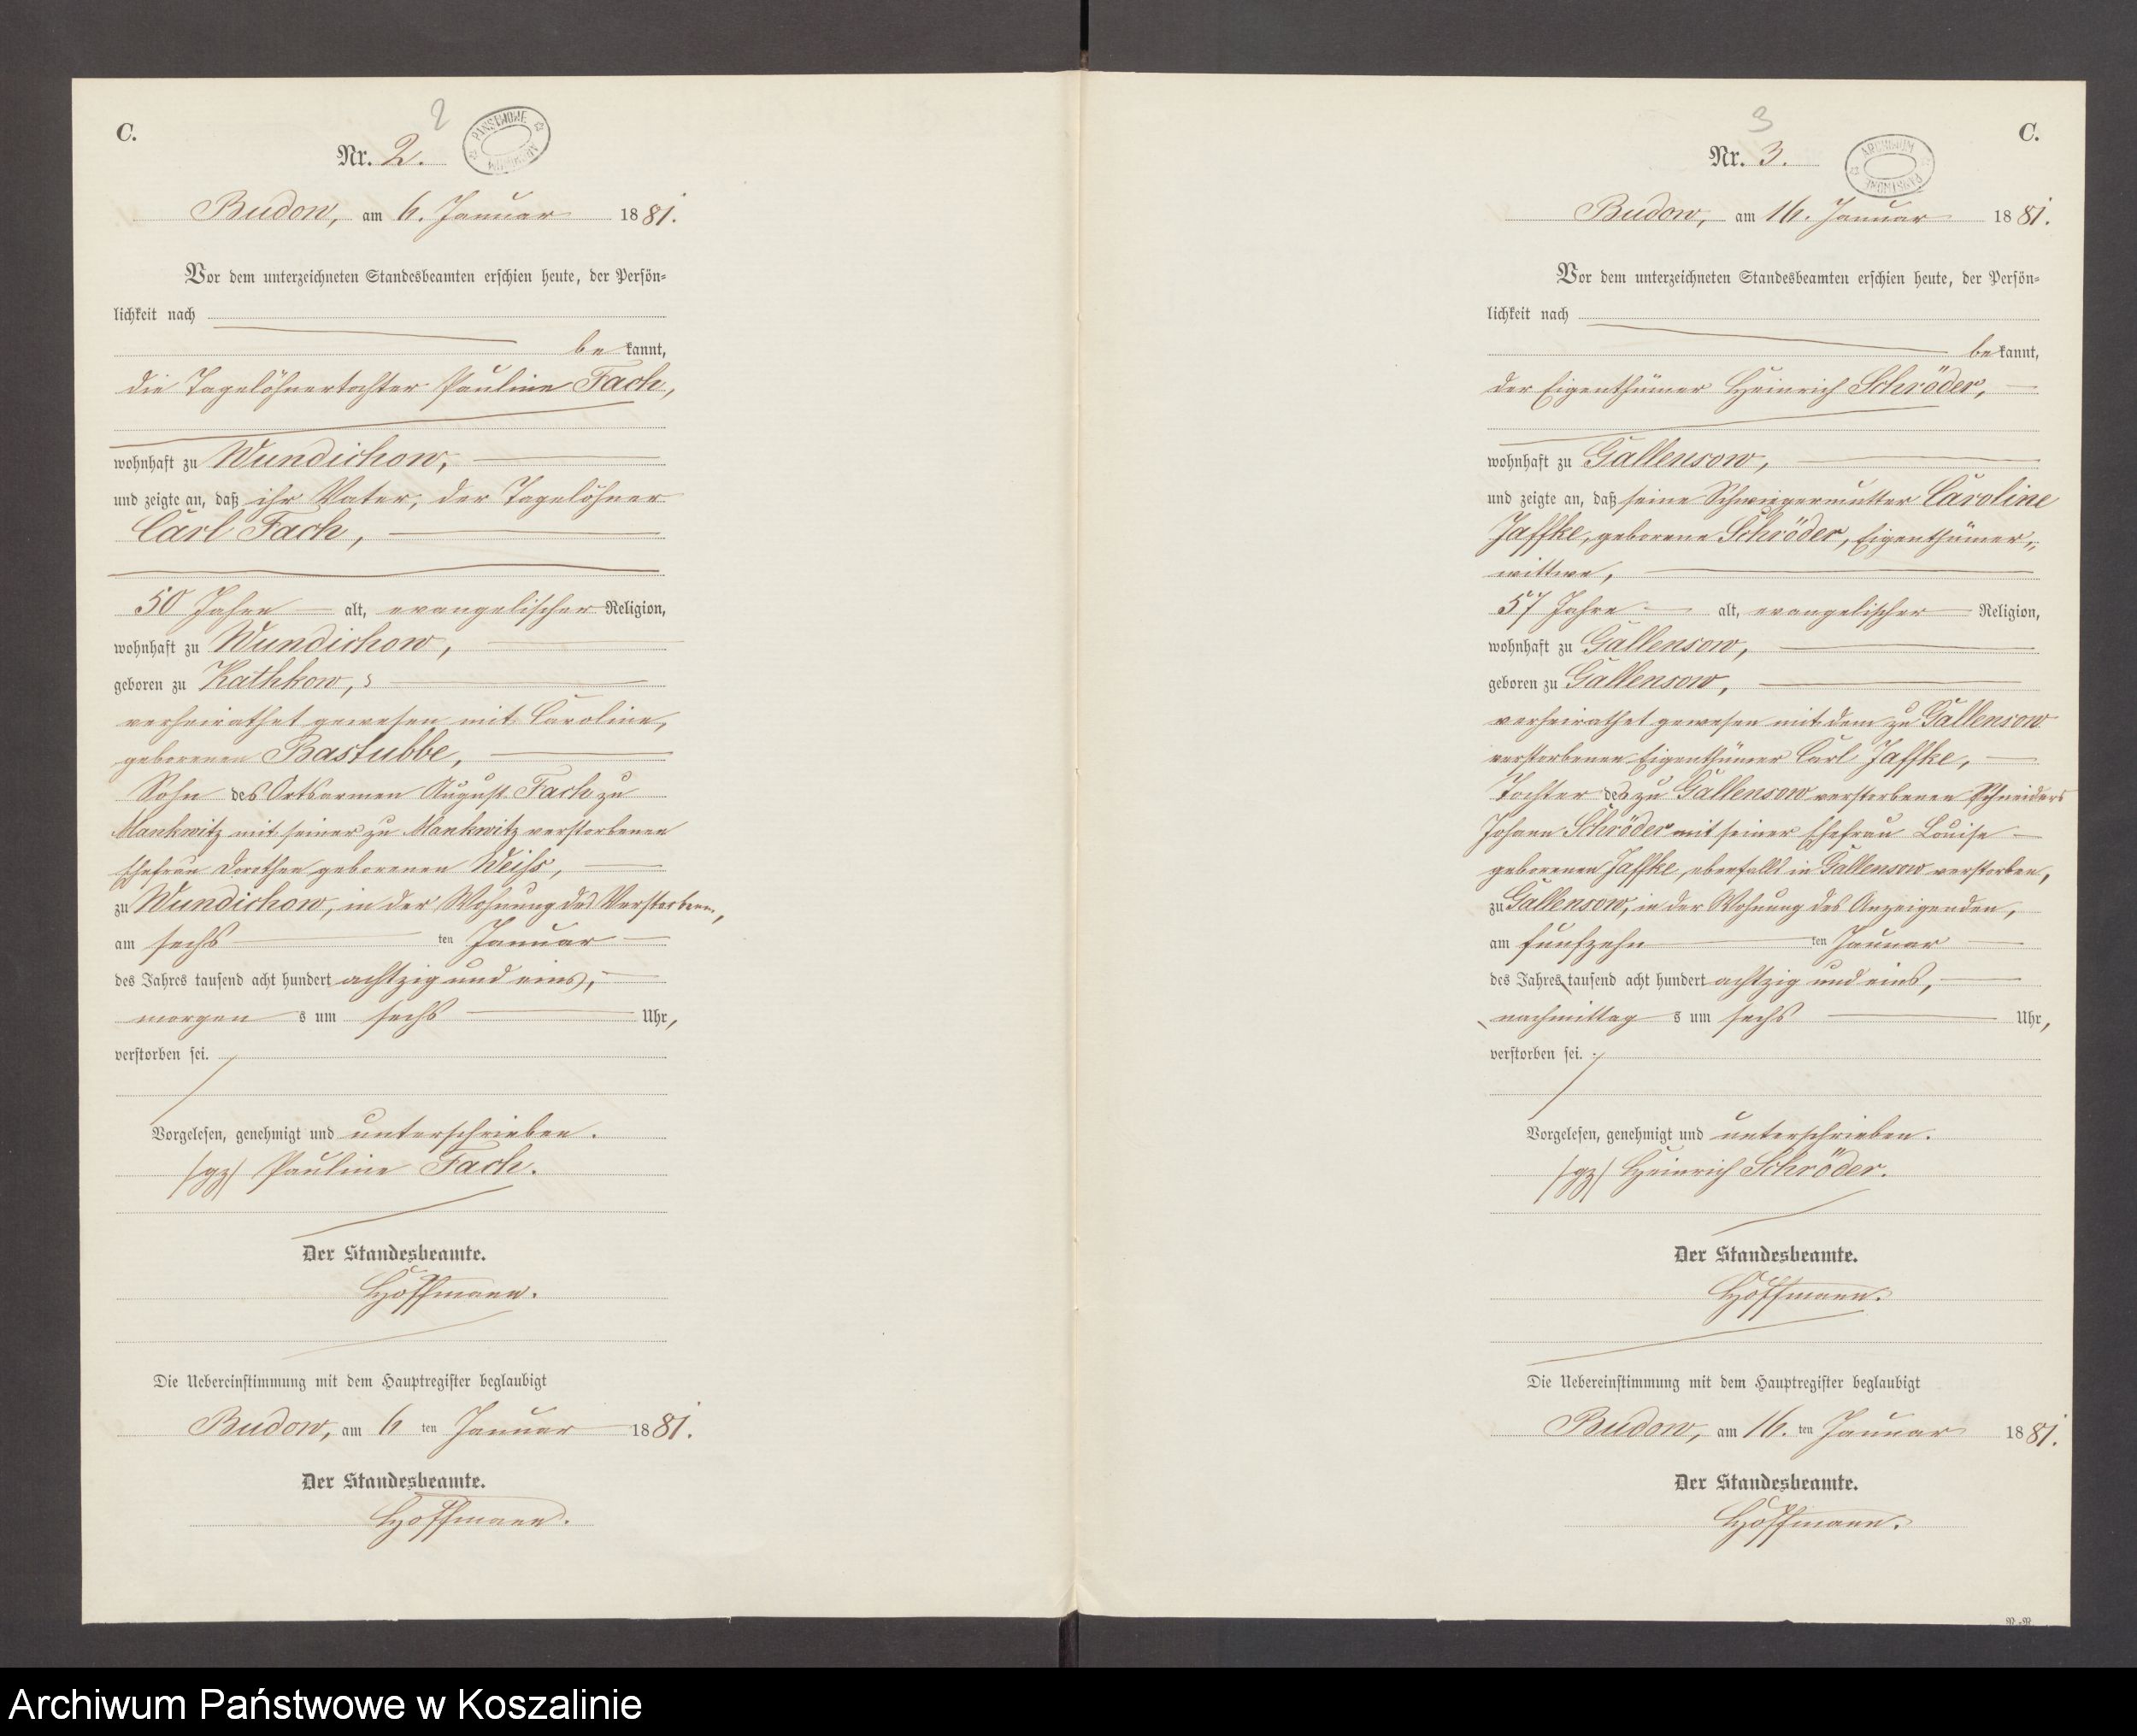 C.
2
Nr. 2.
PAŃSTWOWE ARCHIWUM
Budow, am 6. Januar 1881.
Vor dem unterzeichneten Standesbeamten erschien heute, der Persön-
lichkeit nach
be kannt,
die Tagelöhnertochter Pauline Fach,
wohnhaft zu Wundichow,
und zeigte an, daß ihr Vater, der Tagelöhner
Carl Fach,
50 Jahre alt, evangelischer Religion,
wohnhaft zu Wundichow,
geboren zu Kathkow,
verheirathet gewesen mit Caroline,
geborenen Bastubbe,
Sohn des Ortsarmen August Fach zu
Mankwitz mit seiner zu Mankwitz verstorbenen
Ehefrau Dorothea geborenen Weiss,
zu Wundichow, in der Wohnung des Verstorbenen,
am sechs ten Januar
des Jahres tausend acht hundert achtzig und eins,
morgen s um sechs Uhr,
verstorben sei.
Vorgelesen, genehmigt und unterschrieben.
/gz/ Pauline Fach.
Der Standesbeamte.
Hoffmann.
Die Uebereinstimmung mit dem Hauptregister beglaubigt
Budow, am 6 ten Januar 1881.
Der Standesbeamte.
Hoffmann.
C.
3
Nr. 3.
ARCHIWUM PAŃSTWOWE
Budow, am 16. Januar 1881.
Vor dem unterzeichneten Standesbeamten erschien heute, der Persön-
lichkeit nach
be kannt,
der Eigenthümer Heinrich Schröder,
wohnhaft zu Gallensow,
und zeigte an, daß seine Schwiegermutter Caroline
Jaffke, geborene Schröder, Eigenthümer-
wittwe,
57 Jahre alt, evangelischer Religion,
wohnhaft zu Gallensow,
geboren zu Gallensow,
verheirathet gewesen mit dem zu Gallensow
verstorbenen Eigenthümer Carl Jaffke,
Tochter des zu Gallensow verstorbenen Schneiders
Johann Schröder mit seiner Ehefrau Louise
geborenen Jaffke, ebenfalls in Gallensow verstorben,
zu Gallensow, in der Wohnung des Anzeigenden,
am fünfzehn ten Januar
des Jahres tausend acht hundert achtzig und eins,
nachmittag s um sechs Uhr,
verstorben sei.
Vorgelesen, genehmigt und unterschrieben.
/gz/ Heinrich Schröder.
Der Standesbeamte.
Hoffmann.
Die Uebereinstimmung mit dem Hauptregister beglaubigt
Budow, am 16. ten Januar 1881.
Der Standesbeamte.
Hoffmann.
Archiwum Państwowe w Koszalinie